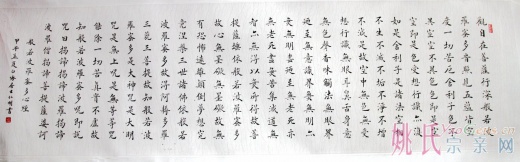 觀自在菩薩行深般若
波羅蜜多時照見五蘊皆空
度一切苦厄舍利子色不
異空空不異色色即是空
空即是色受想行識亦復
如是舍利子是諸法空相
不生不滅不垢不淨不增
不減是故空中無色無受
想行識無眼耳鼻舌身意
無色聲香味觸法無眼界
乃至無意識界無無明亦
無無明盡乃至無老死亦
無老死盡無苦集滅道無
智亦無得以無所得故菩
提薩埵依般若波羅蜜多
故心無罣礙無罣礙故無
有恐怖遠離顛倒夢想究
竟涅槃三世諸佛依般若
波羅蜜多故得阿耨多羅
三藐三菩提故知般若波
羅蜜多是大神咒是大明
咒是無上咒是無等等咒
能除一切苦真實不虛故
說般若波羅蜜多咒即說
咒曰揭諦揭諦波羅揭諦
波羅僧揭諦菩提薩婆訶
般若波羅蜜多心經
甲午
姚氏宗亲网